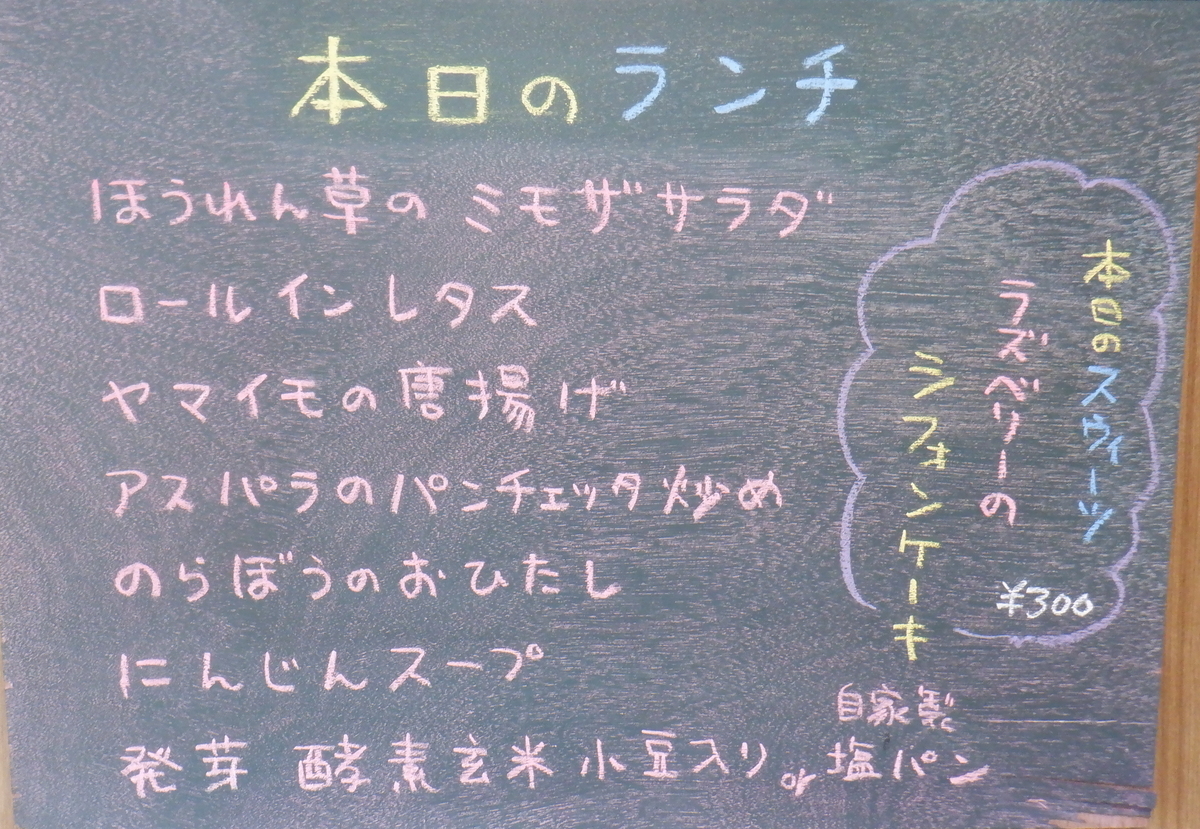 本日のランチ
ほうれん草の ミモザサラダ
ロールインレタス
ヤマイモの唐揚げ
アスパラのパンチェッタ炒め
のらぼうのおひたし
にんじんスープ
発芽 酵素玄米 小豆入り or 自家製塩パン
本日のスウィーツ
ラズベリーの
シフォンケーキ
¥300